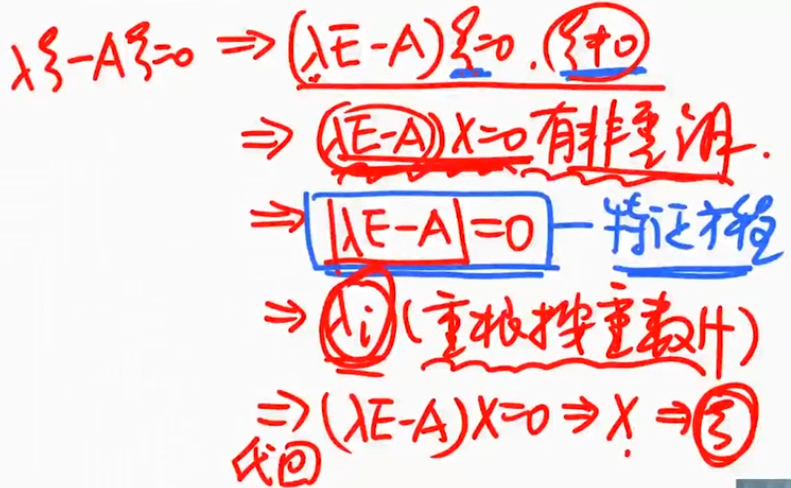 λξ-Aξ=0 ⇒ (λE-A)ξ=0. ξ≠0
⇒ (λE-A)X=0有非零解.
⇒ |λE-A|=0 — 特征方程
⇒ λi (重根按重数计)
⇒ (λE-A)X=0 ⇒ X ⇒ ξ
代回